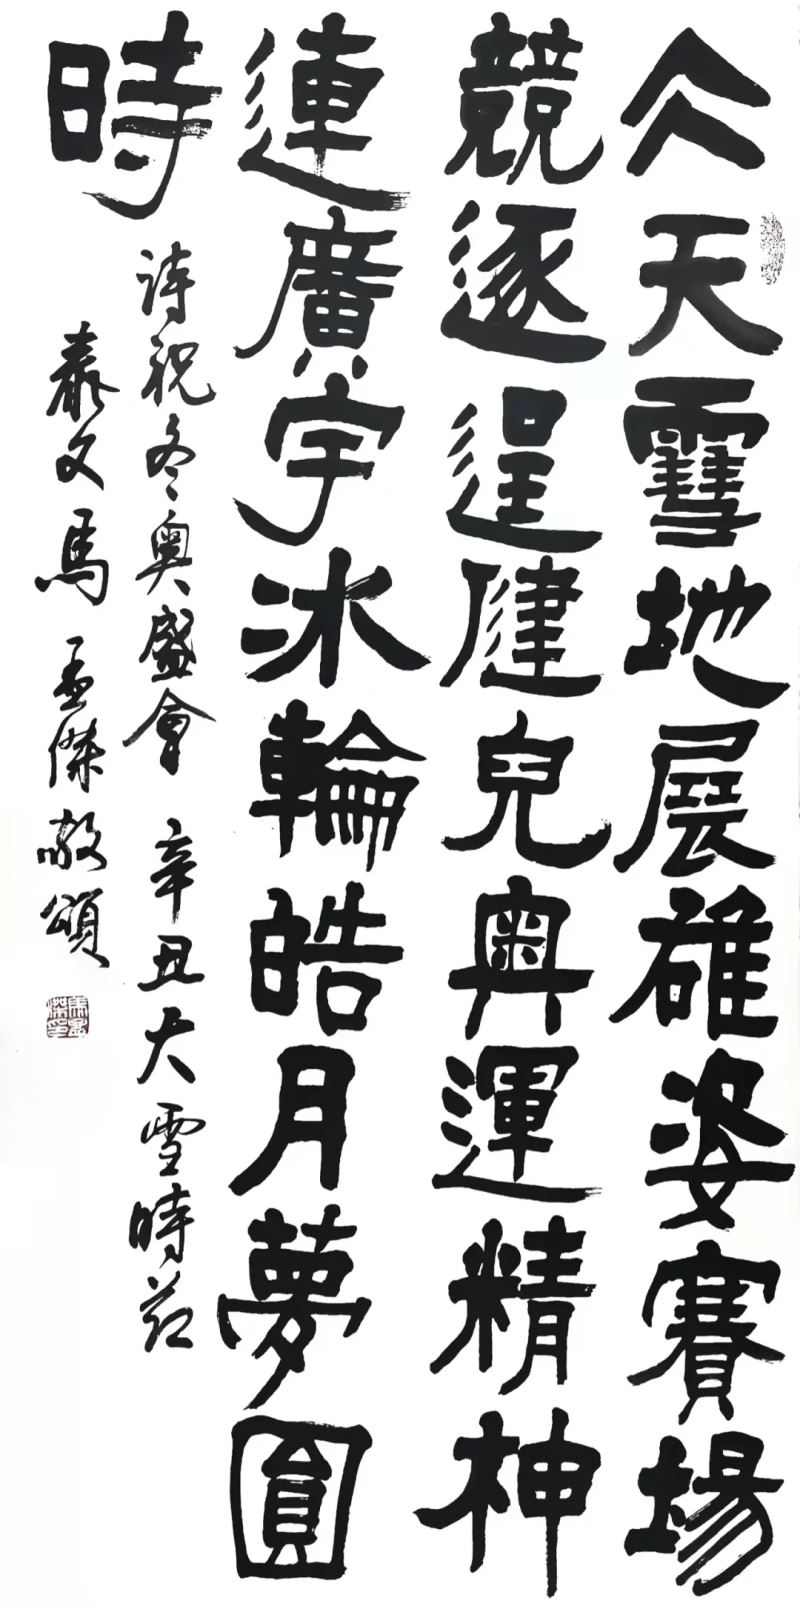 仌天䨮地展雄姿賽場
競逐逞健兒奧運精神
連廣宇冰輪皓月夢圓
時
诗祝冬奥盛會 辛丑大雪時节
文馬孟傑敬頌
馬孟傑印